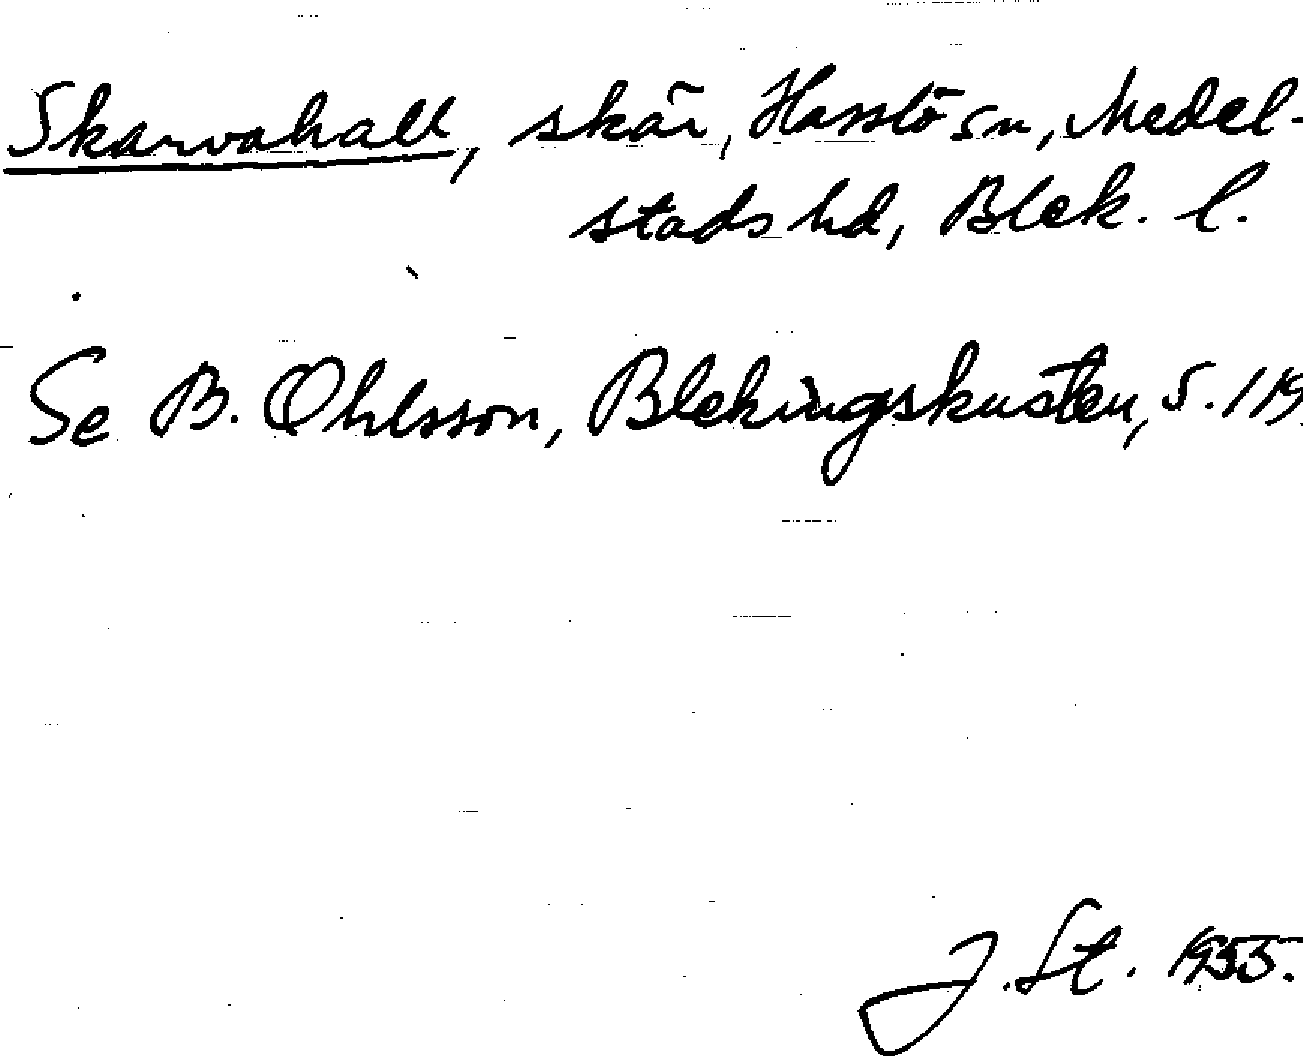 Skarvahall, skär, Hasslö sn, Medel-
stads hd, Blek. l.
Se B. Ohlsson, Blekingskusten, s. 119.
J. St. 1955.